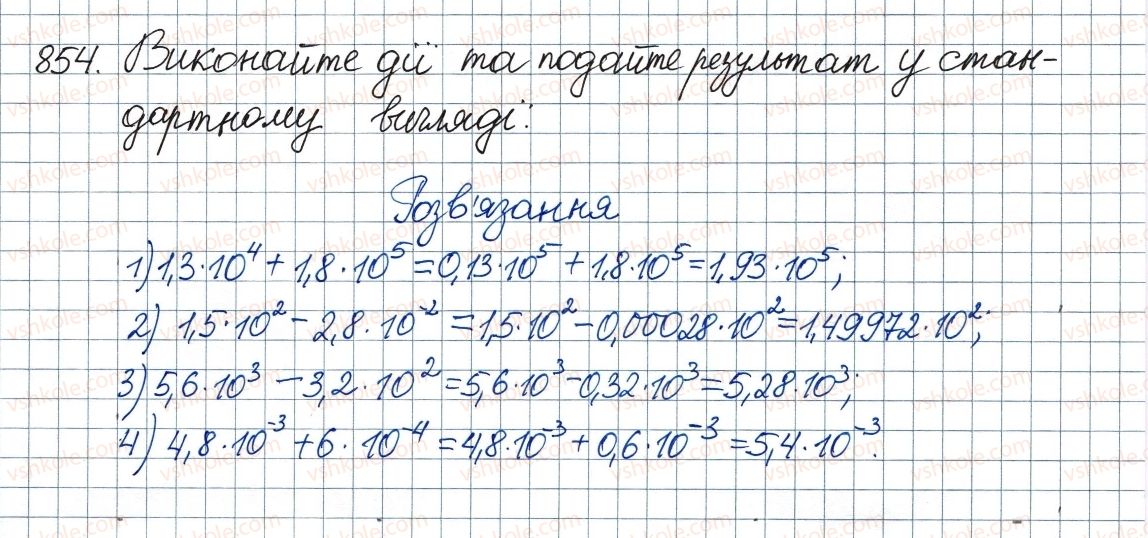 854. Виконайте дії та подайте результат у стан-
дартному вигляді:
Розв'язання
1) 1,3·10⁴ + 1,8·10⁵ = 0,13·10⁵ + 1,8·10⁵ = 1,93·10⁵;
2) 1,5·10² - 2,8·10⁻² = 1,5·10² - 0,00028·10² = 1,49972·10²;
3) 5,6·10³ - 3,2·10² = 5,6·10³ - 0,32·10³ = 5,28·10³;
4) 4,8·10⁻³ + 6·10⁻⁴ = 4,8·10⁻³ + 0,6·10⁻³ = 5,4·10⁻³.